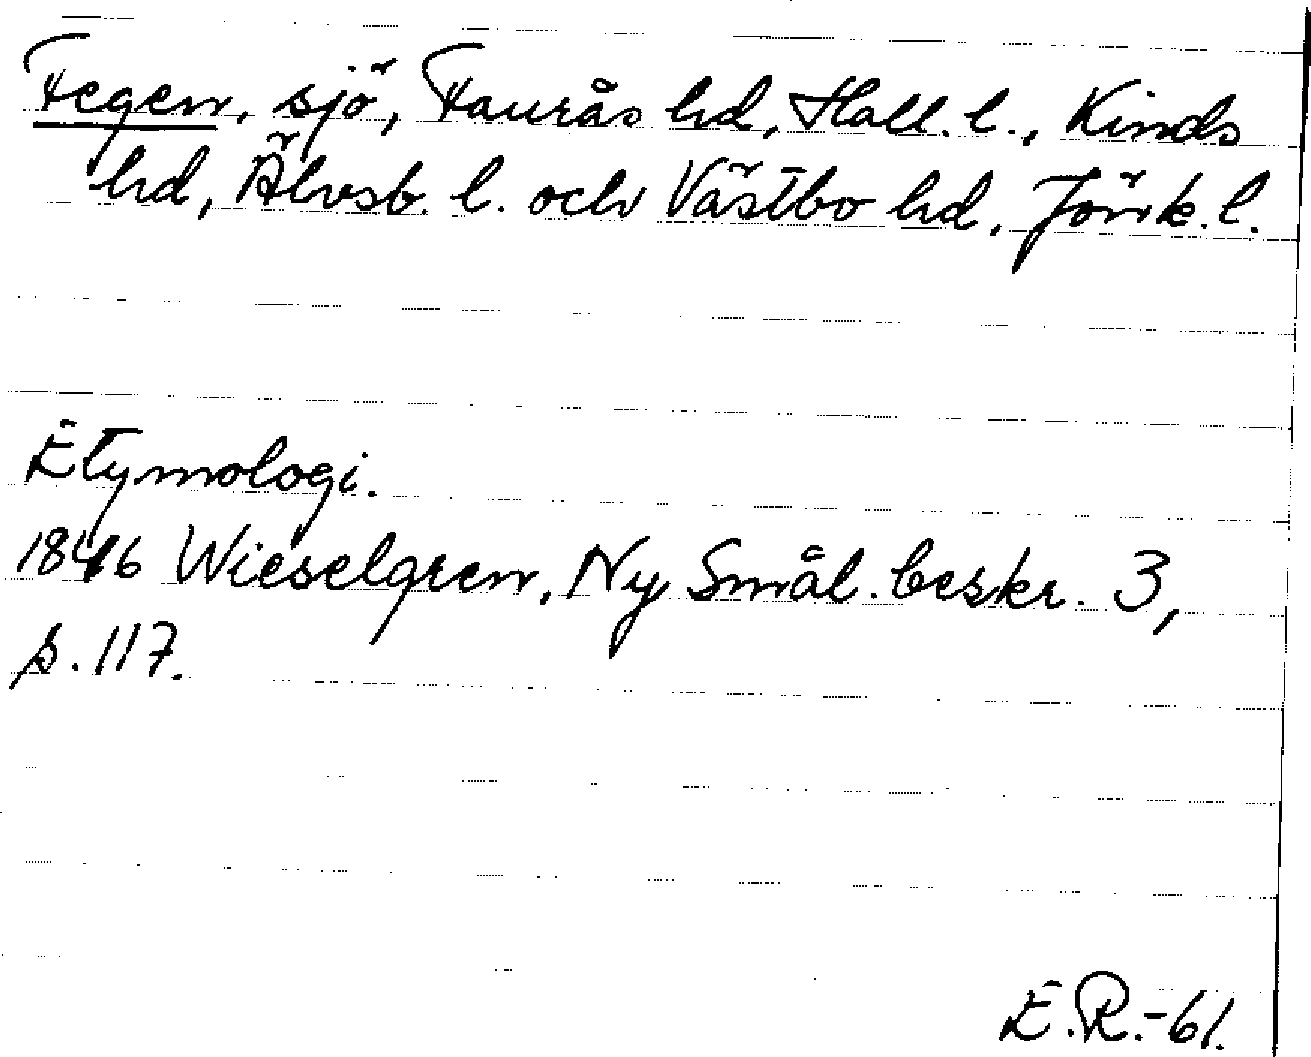 Fegen, sjö, Faurås hd, Hall. l., Kinds
hd, Älvsb. l. och Västbo hd, Jönk. l.
Etymologi.
1846 Wieselgren, Ny Smål. beskr. 3,
s. 117.
E.R.-61.